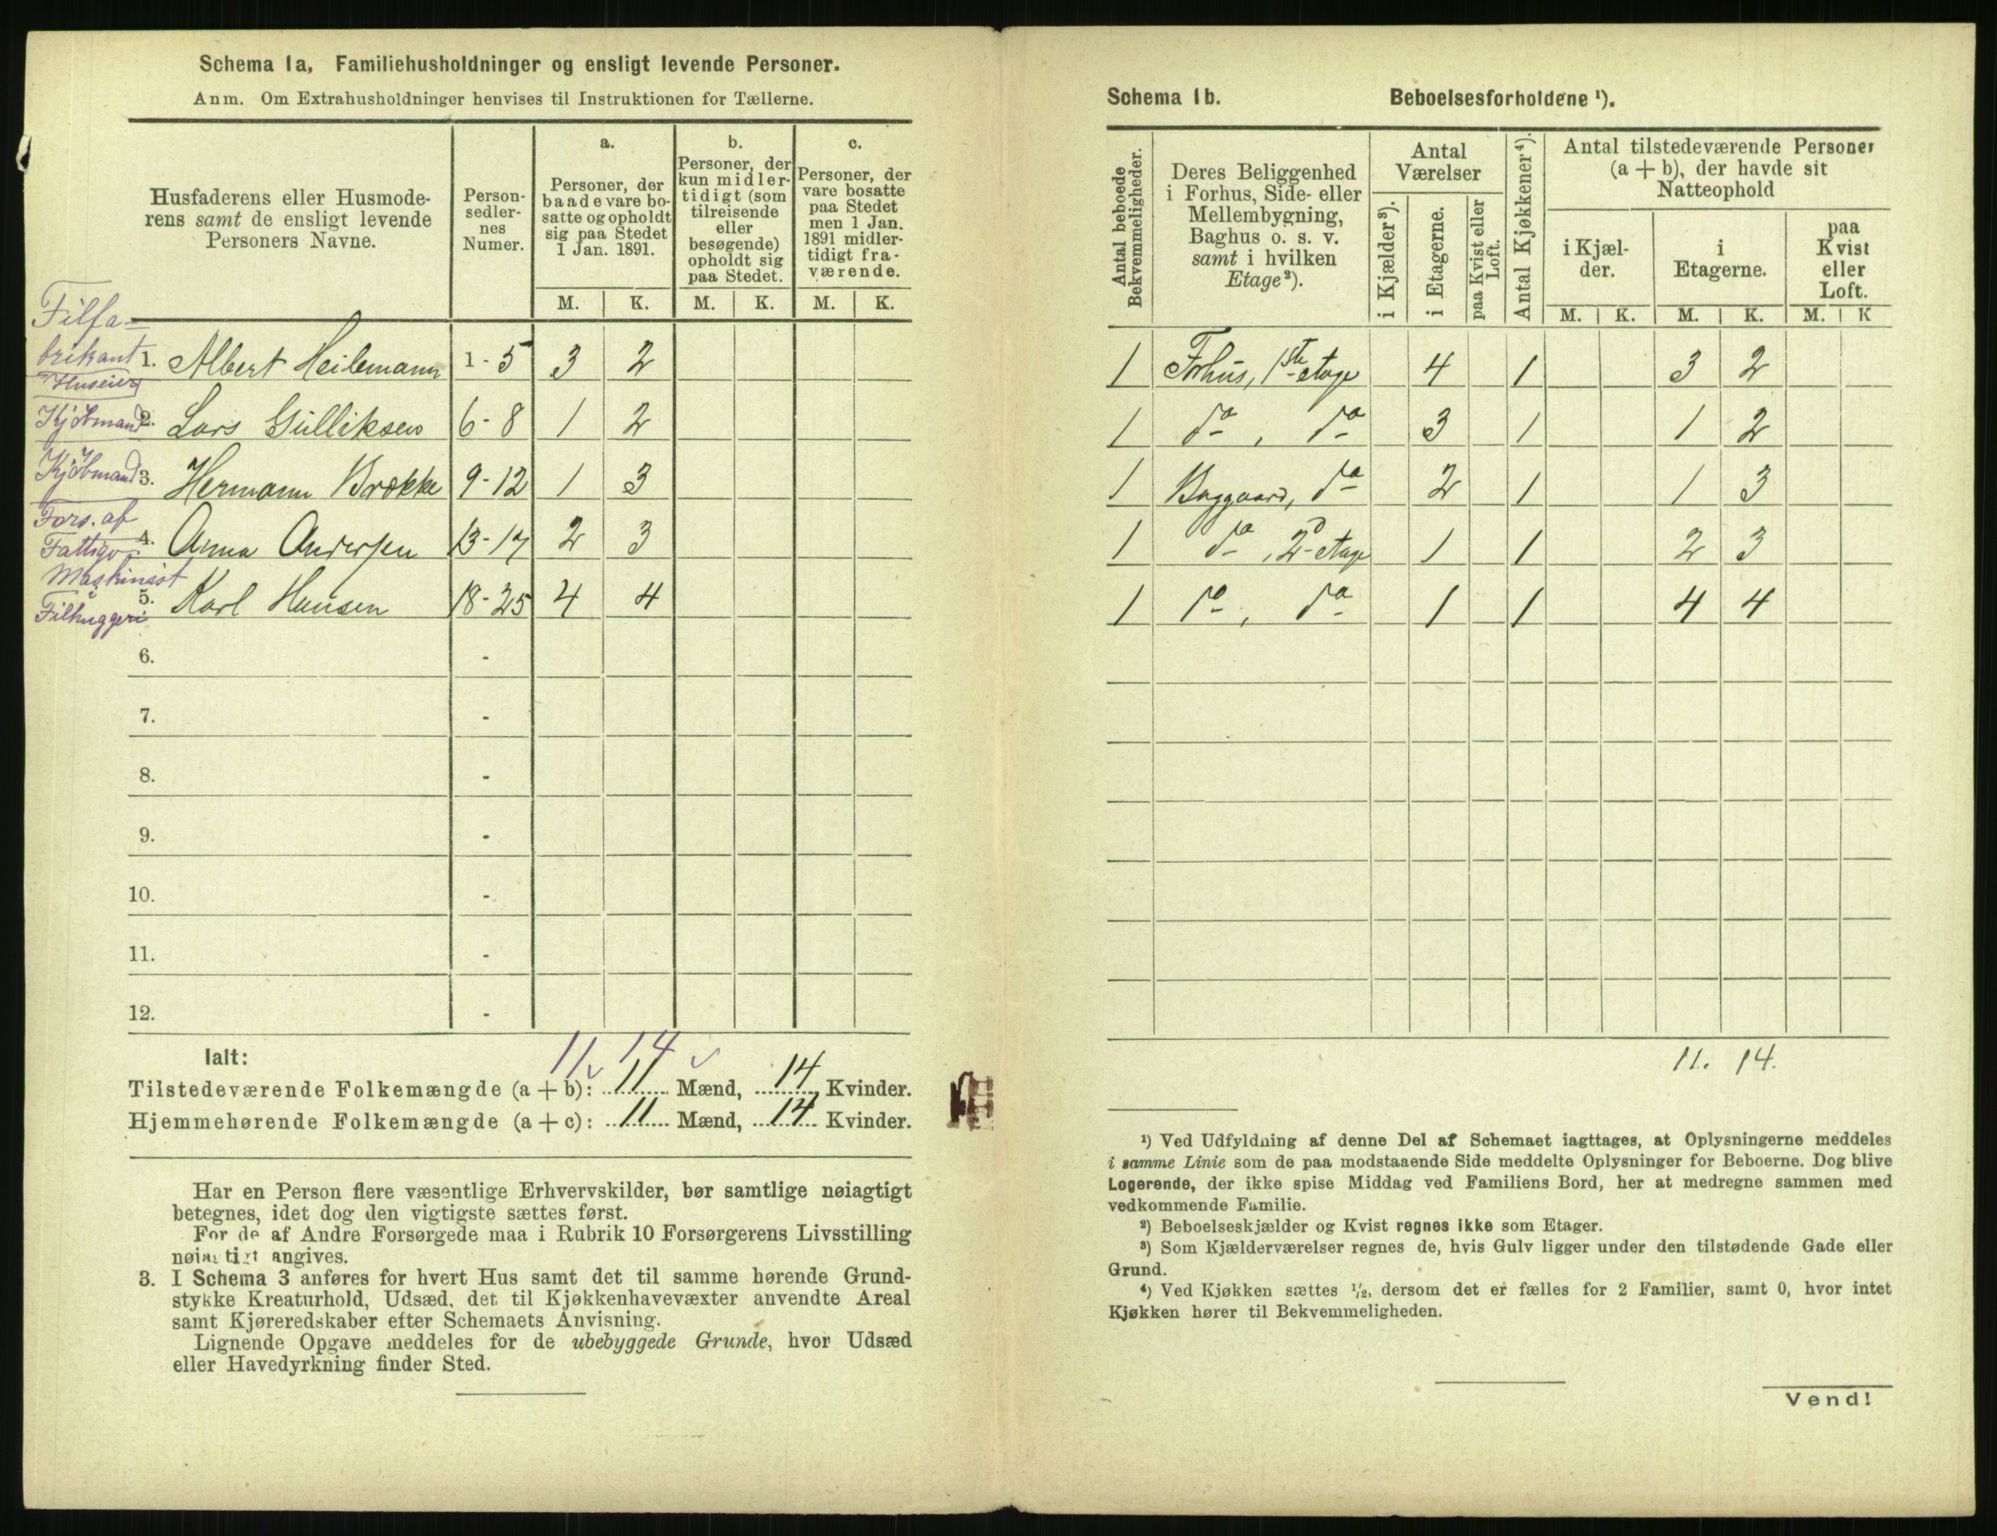 Schema 1a, Familiehusholdninger og ensligt levende Personer.
Anm. Om Extrahusholdninger henvises til Instruktionen for Tællerne.
Husfaderens eller Husmoderens samt de ensligt levende Personers Navne.
Personsedlernes Numer.
a.
Personer, der baade vare bosatte og opholdt sig paa Stedet 1 Jan. 1891.
b.
Personer, der kun midlertidigt (som tilreisende eller besøgende) opholdt sig paa Stedet.
c.
Personer, der vare bosatte paa Stedet men 1 Jan. 1891 midlertidigt fraværende.
M. K. M. K. M. K.
Filfabrikant Huseier 1. Albert Heilemann 1-5 3 2
Kjøbmand 2. Lars Gulliksen 6-8 1 2
Kjøbmand 3. Hermann Brokke 9-12 1 3
Fors. af Fattigv. 4. Anna Andersen 13-17 2 3
Maskinist Filhuggeri 5. Karl Hansen 18-25 4 4
6. -
7. -
8. -
9. -
10. -
11. -
12. -
Ialt:
11 14
Tilstedeværende Folkemængde (a + b): 11 Mænd, 14 Kvinder.
Hjemmehørende Folkemængde (a + c): 11 Mænd, 14 Kvinder.
Har en Person flere væsentlige Erhvervskilder, bør samtlige nøiagtigt
betegnes, idet dog den vigtigste sættes først.
For de af Andre Forsørgede maa i Rubrik 10 Forsørgerens Livsstilling
nøiagtigt angives.
3. I Schema 3 anføres for hvert Hus samt det til samme hørende Grund-
stykke Kreaturhold, Udsæd, det til Kjøkkenhavevæxter anvendte Areal
samt Kjøreredskaber efter Schemaets Anvisning.
Lignende Opgave meddeles for de ubebyggede Grunde, hvor Udsæd
eller Havedyrkning finder Sted.
Schema 1b. Beboelsesforholdene ¹).
Antal beboede Bekvemmeligheder.
Deres Beliggenhed i Forhus, Side- eller Mellembygning, Baghus o. s. v. samt i hvilken Etage²).
Antal Værelser
i Kjælder³).
i Etagerne.
paa Kvist eller Loft.
Antal Kjøkkener⁴).
Antal tilstedeværende Personer (a + b), der havde sit Natteophold
i Kjælder.
i Etagerne.
paa Kvist eller Loft.
M. K. M. K. M. K
1 Forhus, 1ste etage 4 1 3 2
1 do, do 3 1 1 2
1 Baggaard, do 2 1 1 3
1 do, 2d etage 1 1 2 3
1 do, do 1 1 4 4
11. 14.
¹) Ved Udfyldning af denne Del af Schemaet iagttages, at Oplysningerne meddeles
i samme Linie som de paa modstaaende Side meddelte Oplysninger for Beboerne. Dog blive
Logerende, der ikke spise Middag ved Familiens Bord, her at medregne sammen med
vedkommende Familie.
²) Beboelseskjælder og Kvist regnes ikke som Etager.
³) Som Kjælderværelser regnes de, hvis Gulv ligger under den tilstødende Gade eller
Grund.
⁴) Ved Kjøkken sættes ½, dersom det er fælles for 2 Familier, samt 0, hvor intet
Kjøkken hører til Bekvemmeligheden.
Vend!